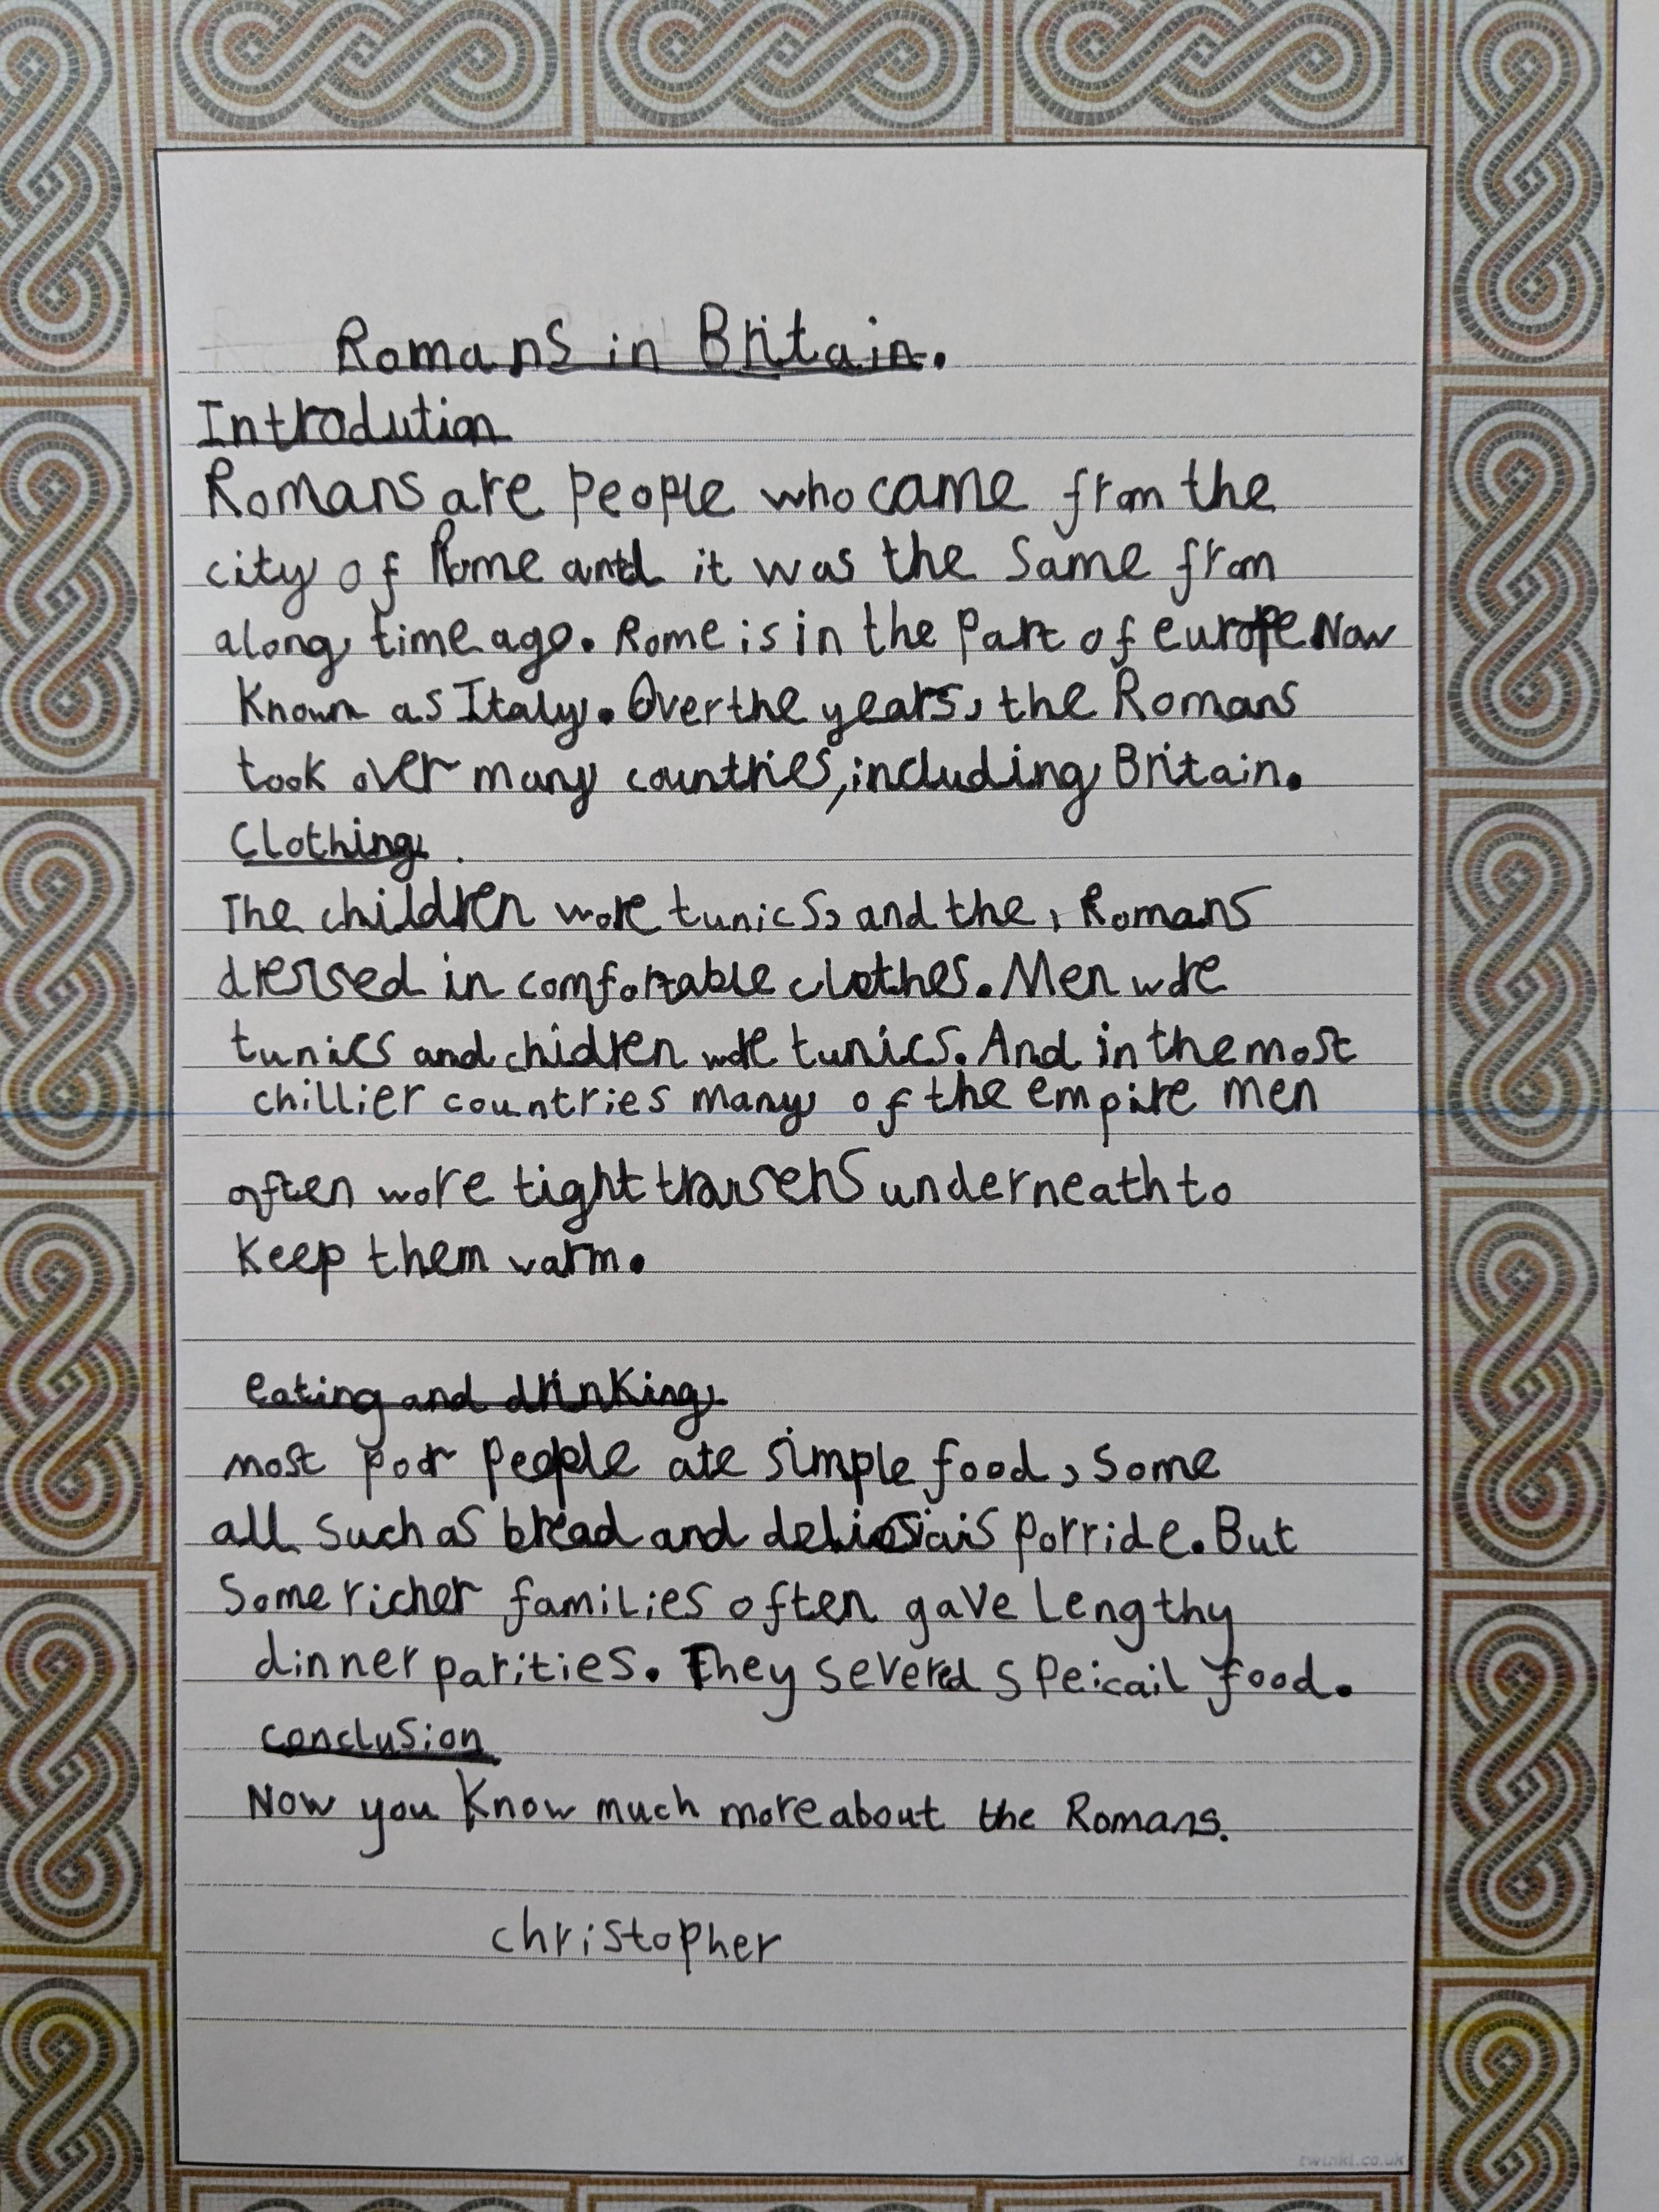 Romans in Britain.
Introdution
Romans are people who came from the
city of Rome and it was the same from
along time ago. Rome is in the part of europe Now
Known as Italy. Over the years, the Romans
took over many countries, including Britain.
Clothing.
The children wore tunics, and the, Romans
dressed in comfortable clothes. Men wore
tunics and chidren wore tunics. And in the most
chillier countries many of the empire men
often wore tight trousers underneath to
Keep them warm.
eating and drinking
most poor people ate simple food, some
all such as bread and porride. But
Some richer families often gave Lengthy
dinner parities. They severed speicail food.
conclusion
Now you Know much more about the Romans.
christopher
twinkl.co.uk